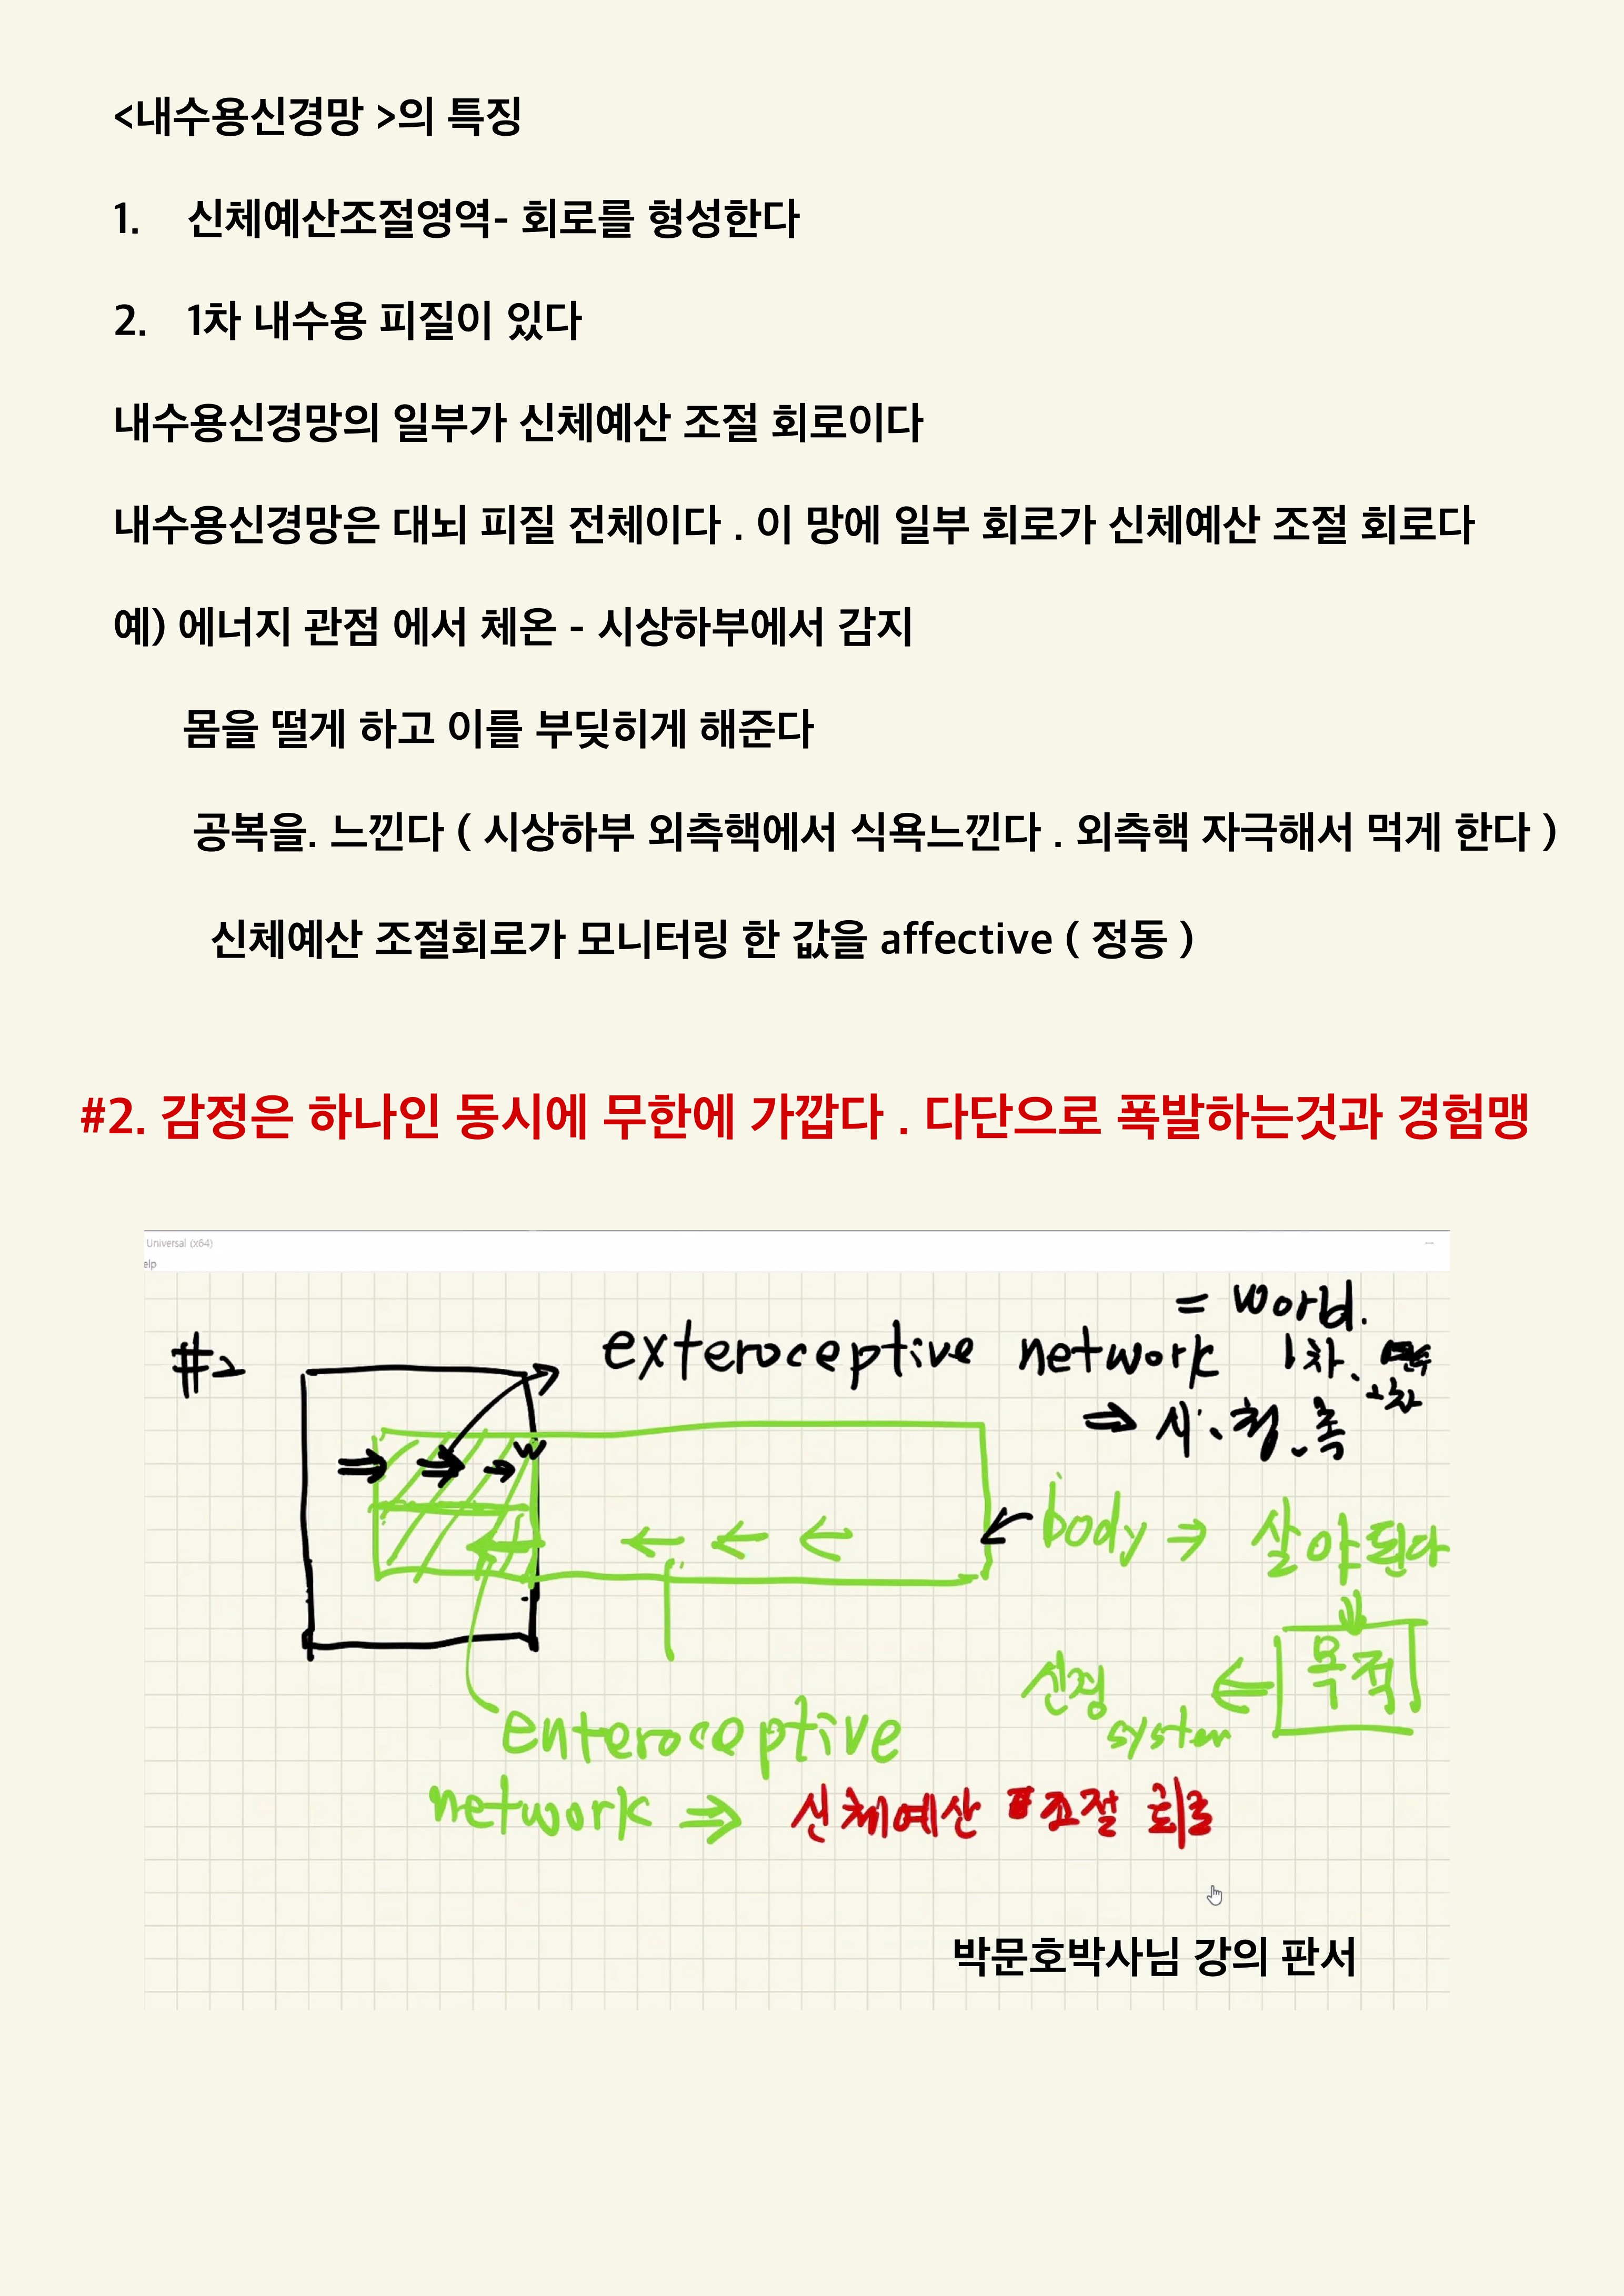 <내수용신경망 >의 특징
1. 신체예산조절영역- 회로를 형성한다
2. 1차 내수용 피질이 있다
내수용신경망의 일부가 신체예산 조절 회로이다
내수용신경망은 대뇌 피질 전체이다 . 이 망에 일부 회로가 신체예산 조절 회로다
예) 에너지 관점 에서 체온 - 시상하부에서 감지
몸을 떨게 하고 이를 부딪히게 해준다
공복을. 느낀다 ( 시상하부 외측핵에서 식욕느낀다 . 외측핵 자극해서 먹게 한다 )
신체예산 조절회로가 모니터링 한 값을 affective ( 정동 )
#2. 감정은 하나인 동시에 무한에 가깝다 . 다단으로 폭발하는것과 경험맹
Universal (x64)
elp
= world.
#2 exteroceptive network 1차.
⇒ 시、청、촉
w
body ⇒ 살아야된다
목적
신경 system
enteroceptive
network ⇒ 신체예산 조절 회로
박문호박사님 강의 판서